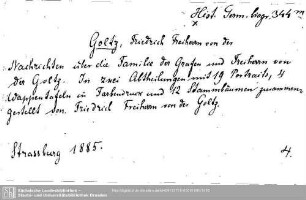 Hist. Germ. biogr. 344 m
Goltz, Friedrich Freiherrn von der
Nachrichten über die Familie der Grafen und Freiherrn von
der Goltz. In zwei Abtheilungen mit 19 Portraits, 4
Wappentafeln in Farbendruck und 12 Stammbäumen zusammen
gestellt von Friedrich Freiherrn von der Goltz.
Strassburg 1885.
4.